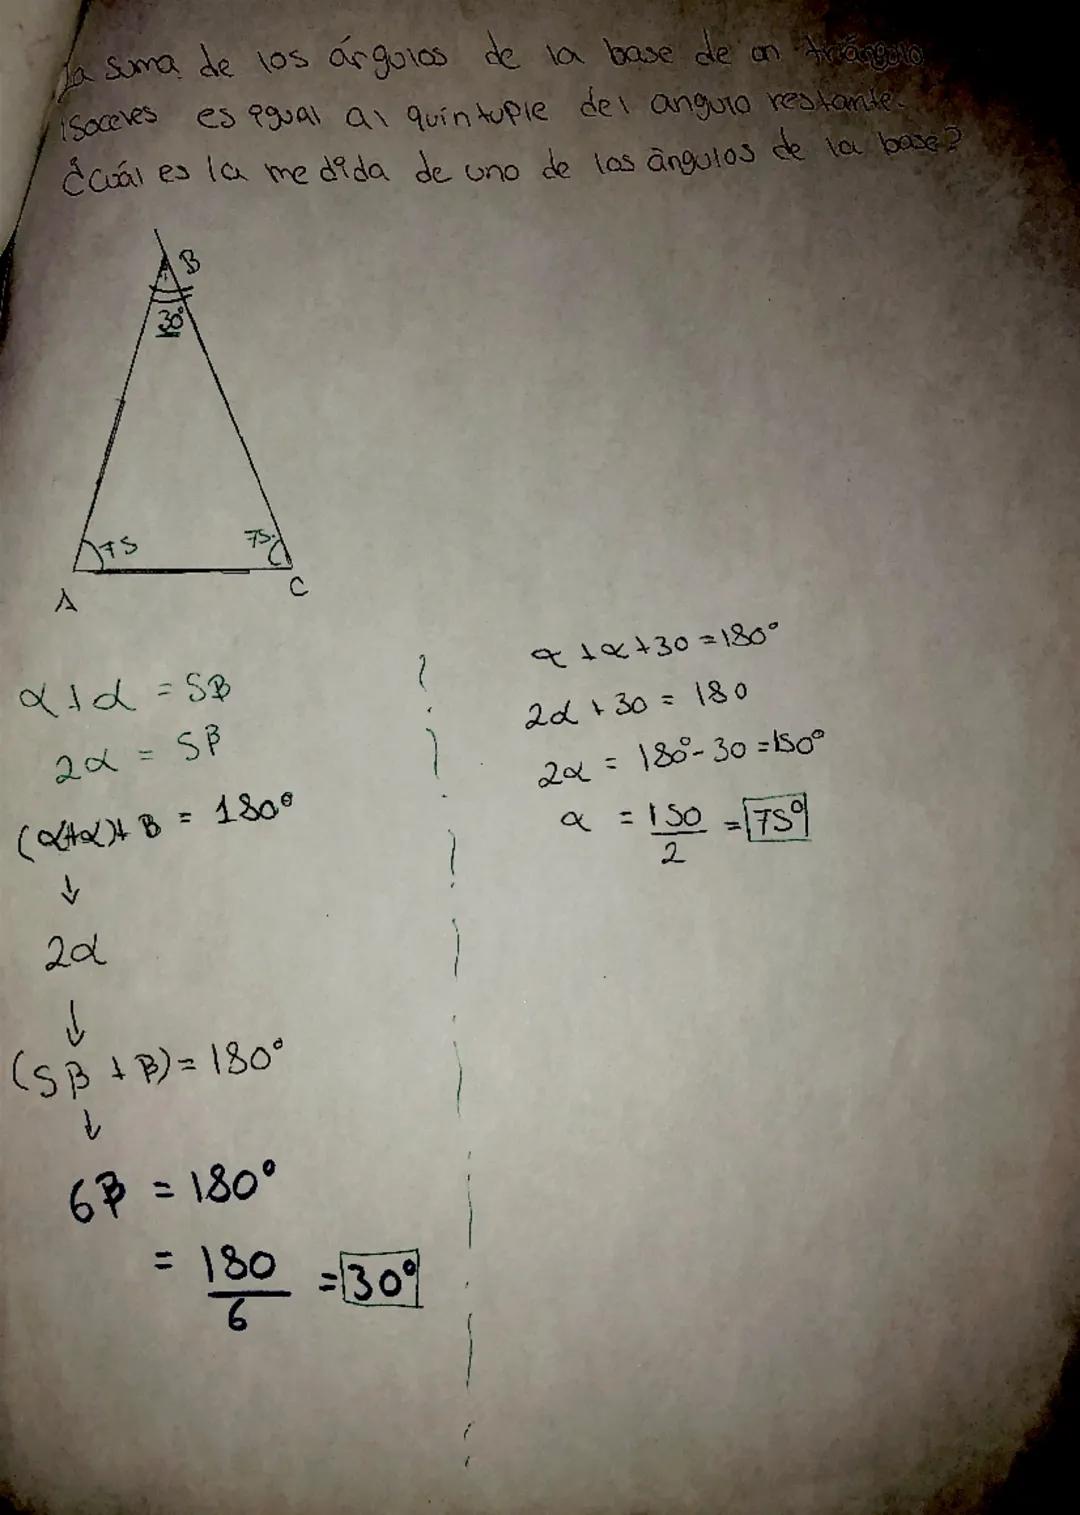 La suma de los árgulos de la base de un triángulo
isoceves es igual al quíntuple del angulo restante.
¿Cuál es la medida de uno de los ángulos de la base?
B
30°
75
75°
A
C
α + α = 5β
2α = 5β
(α+α)+ B = 180°
↓
2α
↓
(5β + β) = 180°
↓
6β = 180°
= 180/6 = 30°
α + α + 30 = 180°
2α + 30 = 180
2α = 180° - 30 = 150°
α = 150/2 = 75°